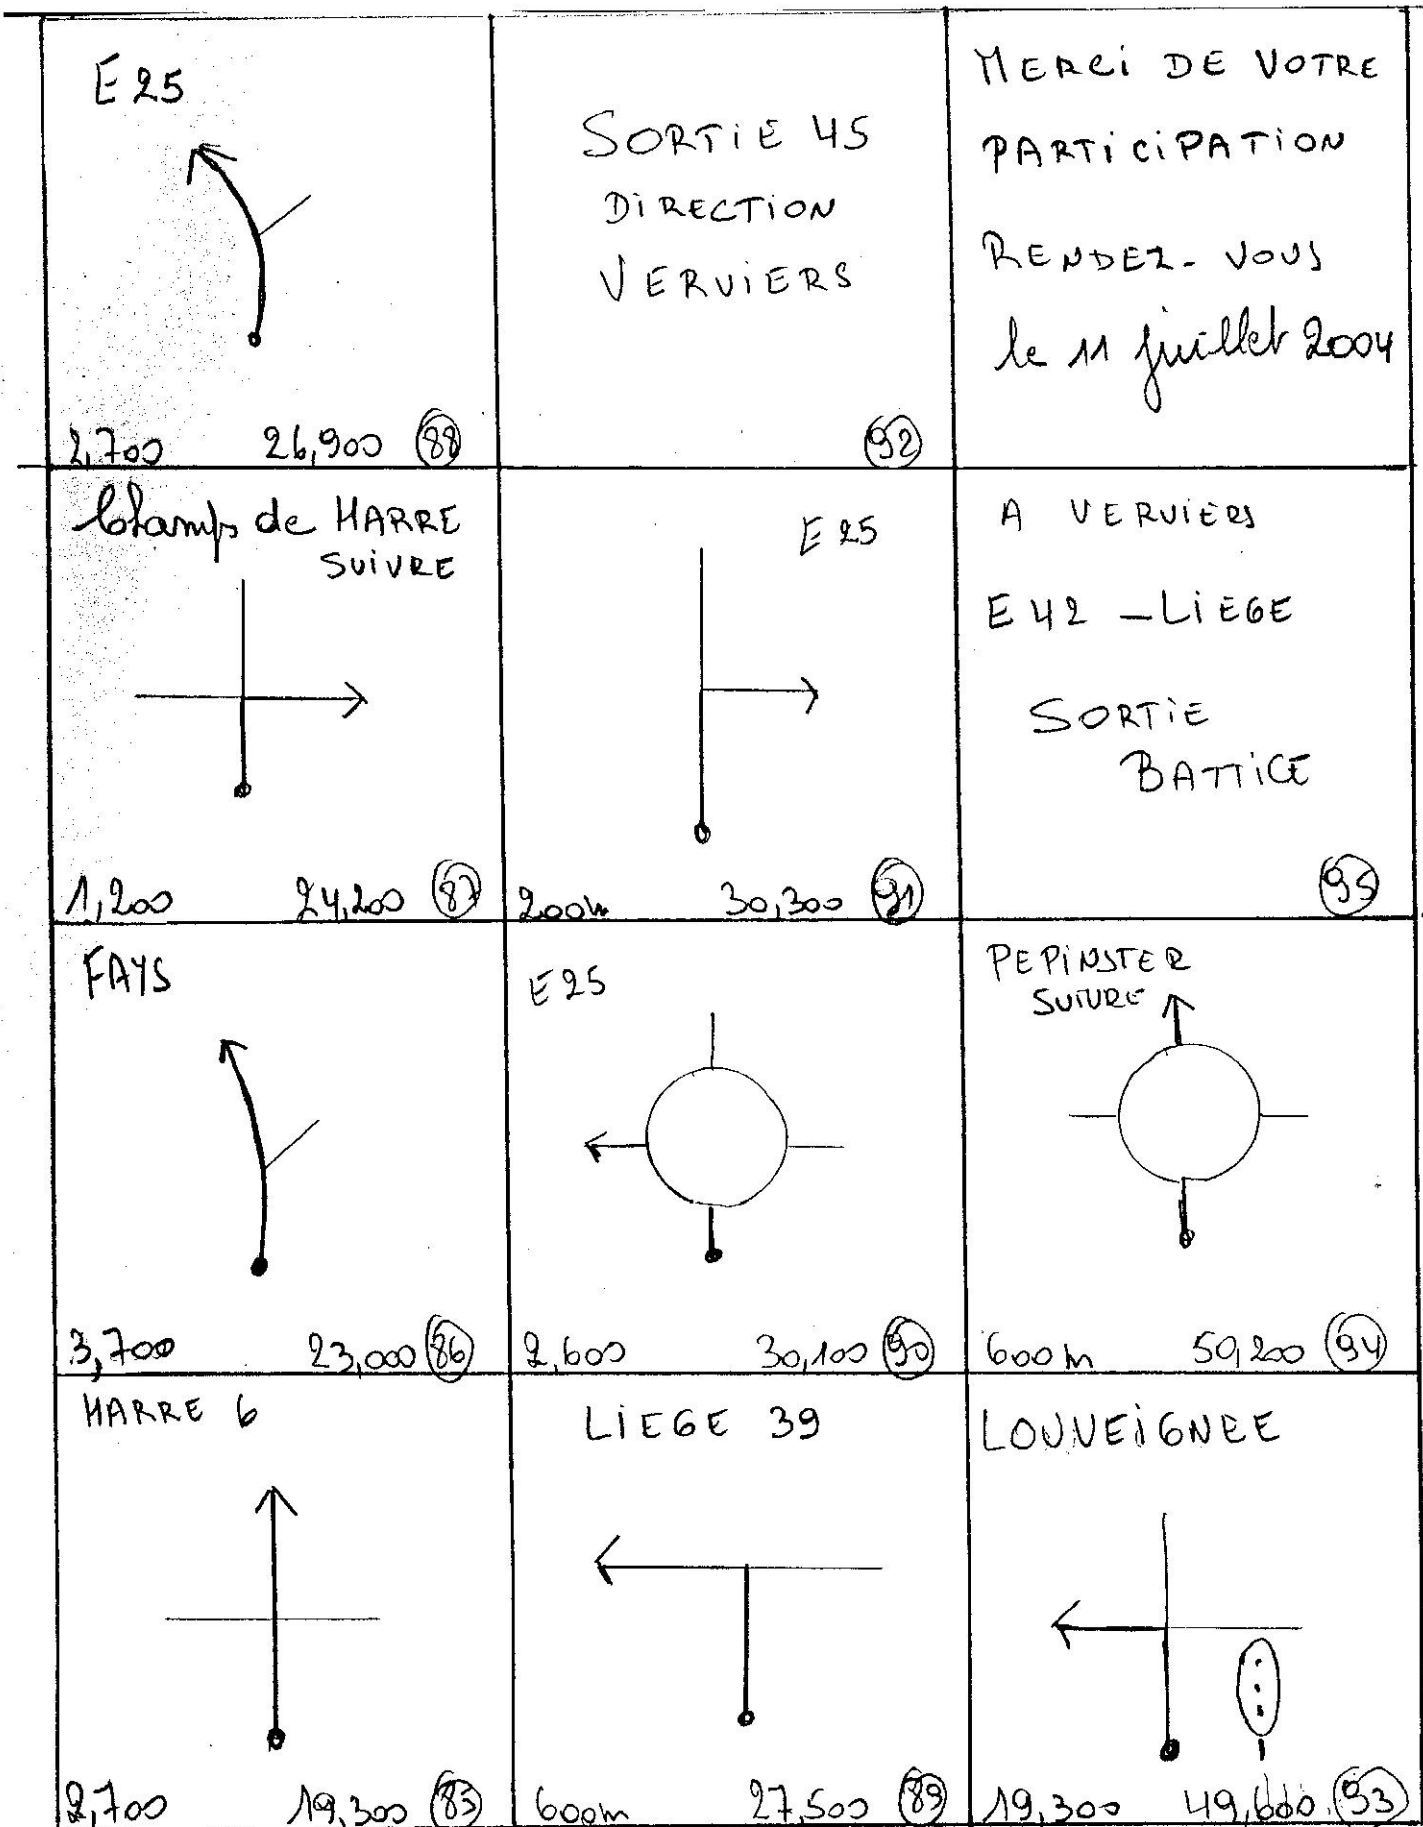 E25
2,700 26,900 88
SORTiE 45
DiRECTiON
VERViERS
92
MERCi DE VOTRE
PARTiCiPATiON
RENDEZ-VOUS
le 11 juillet 2004
Champs de HARRE
SUiVRE
1,200 24,200 87
E25
200m 30,300 91
A VERViERS
E42 - LiEGE
SORTiE
BATTiCE
95
FAYS
3,700 23,000 86
E25
2,600 30,100 90
PEPiNSTER
SUiVRE
600m 50,200 94
HARRE 6
2,700 19,300 85
LiEGE 39
600m 27,500 89
LOUVEiGNEE
19,300 49,600 93